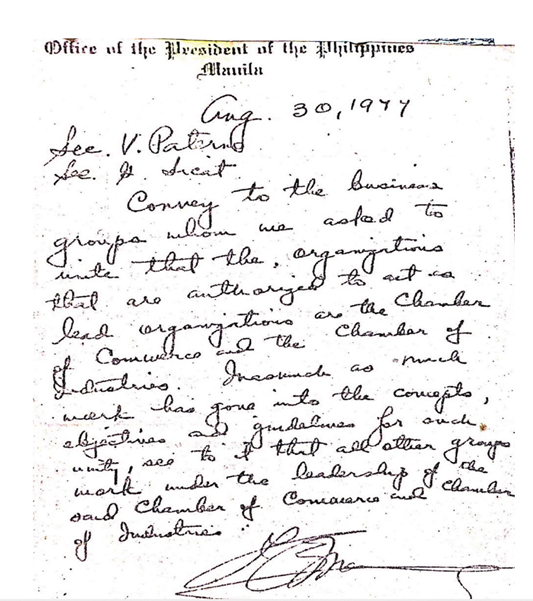 Office of the President of the Philippines
Manila
Aug. 30, 1977
Sec. V. Paterno
Sec. G. Sicat
Convey to the business
groups whom we asked to
unite that the, organizations
that are authorized to act as
lead organizations are the Chamber
of Commerce and the Chamber of
Industries. Inasmuch as much
work has gone into the concepts,
objectives and guidelines for such
unity, see to it that all other groups
work under the leadership of the
said Chamber of Commerce and Chamber
of Industries